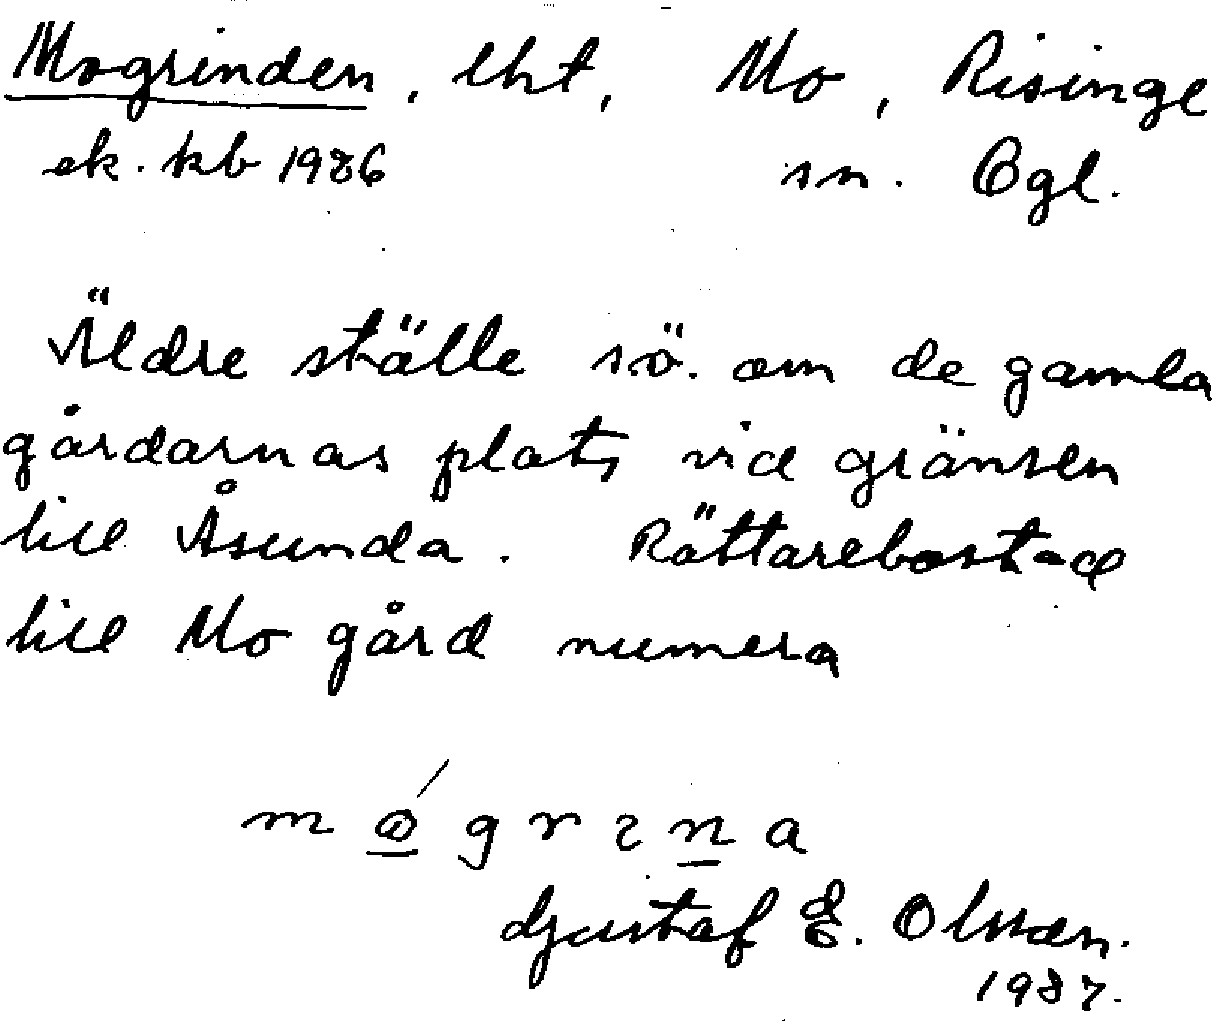 Mogrinden, lht, Mo, Risinge
ek. kb 1986 sn. Ögl.
Äldre ställe sö. om de gamla
gårdarnas plats vid gränsen
till Åsunda. Rättarebostad
till Mo gård numera
Gustaf E. Olsson.
1987.